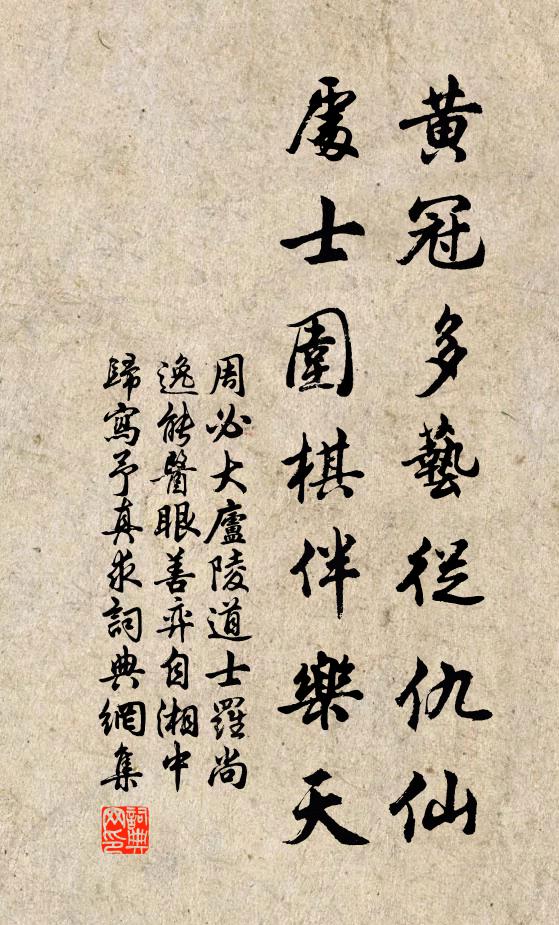 黃冠多藝從仇仙
處士圍棋伴樂天
周必大廬陵道士羅尚
逸能醫眼善弈自湘中
歸寫予真求詞典網集
詞典網印